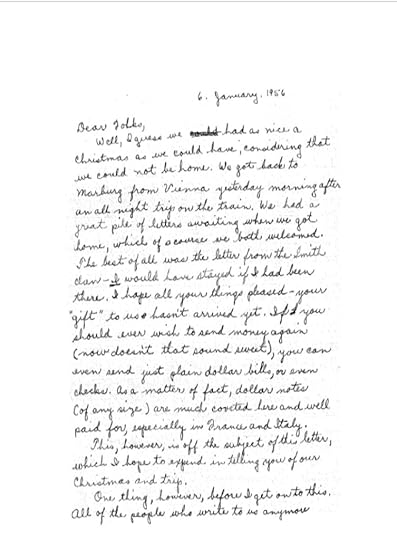 6. January. 1956
Dear Folks,
Well, I guess we could had as nice a
Christmas as we could have, considering that
we could not be home. We got back to
Marburg from Vienna yesterday morning after
an all night trip on the train. We had a
great pile of letters awaiting when we got
home, which of a course we both welcomed.
The best of all was the letter from the Smith
clan - I would have stayed if I had been
there. I hope all your things pleased - your
"gift" to us hasn't arrived yet. If you
should ever wish to send money again
(now doesn't that sound sweet), you can
even send just plain dollar bills, or even
checks. As a matter of fact, dollar notes
(of any size) are much coveted here and well
paid for, especially in France and Italy.
This, however, is off the subject of this letter,
which I hope to expend in telling you of our
Christmas and trip.
One thing, however, before I get on to this.
All of the people who write to us anymore